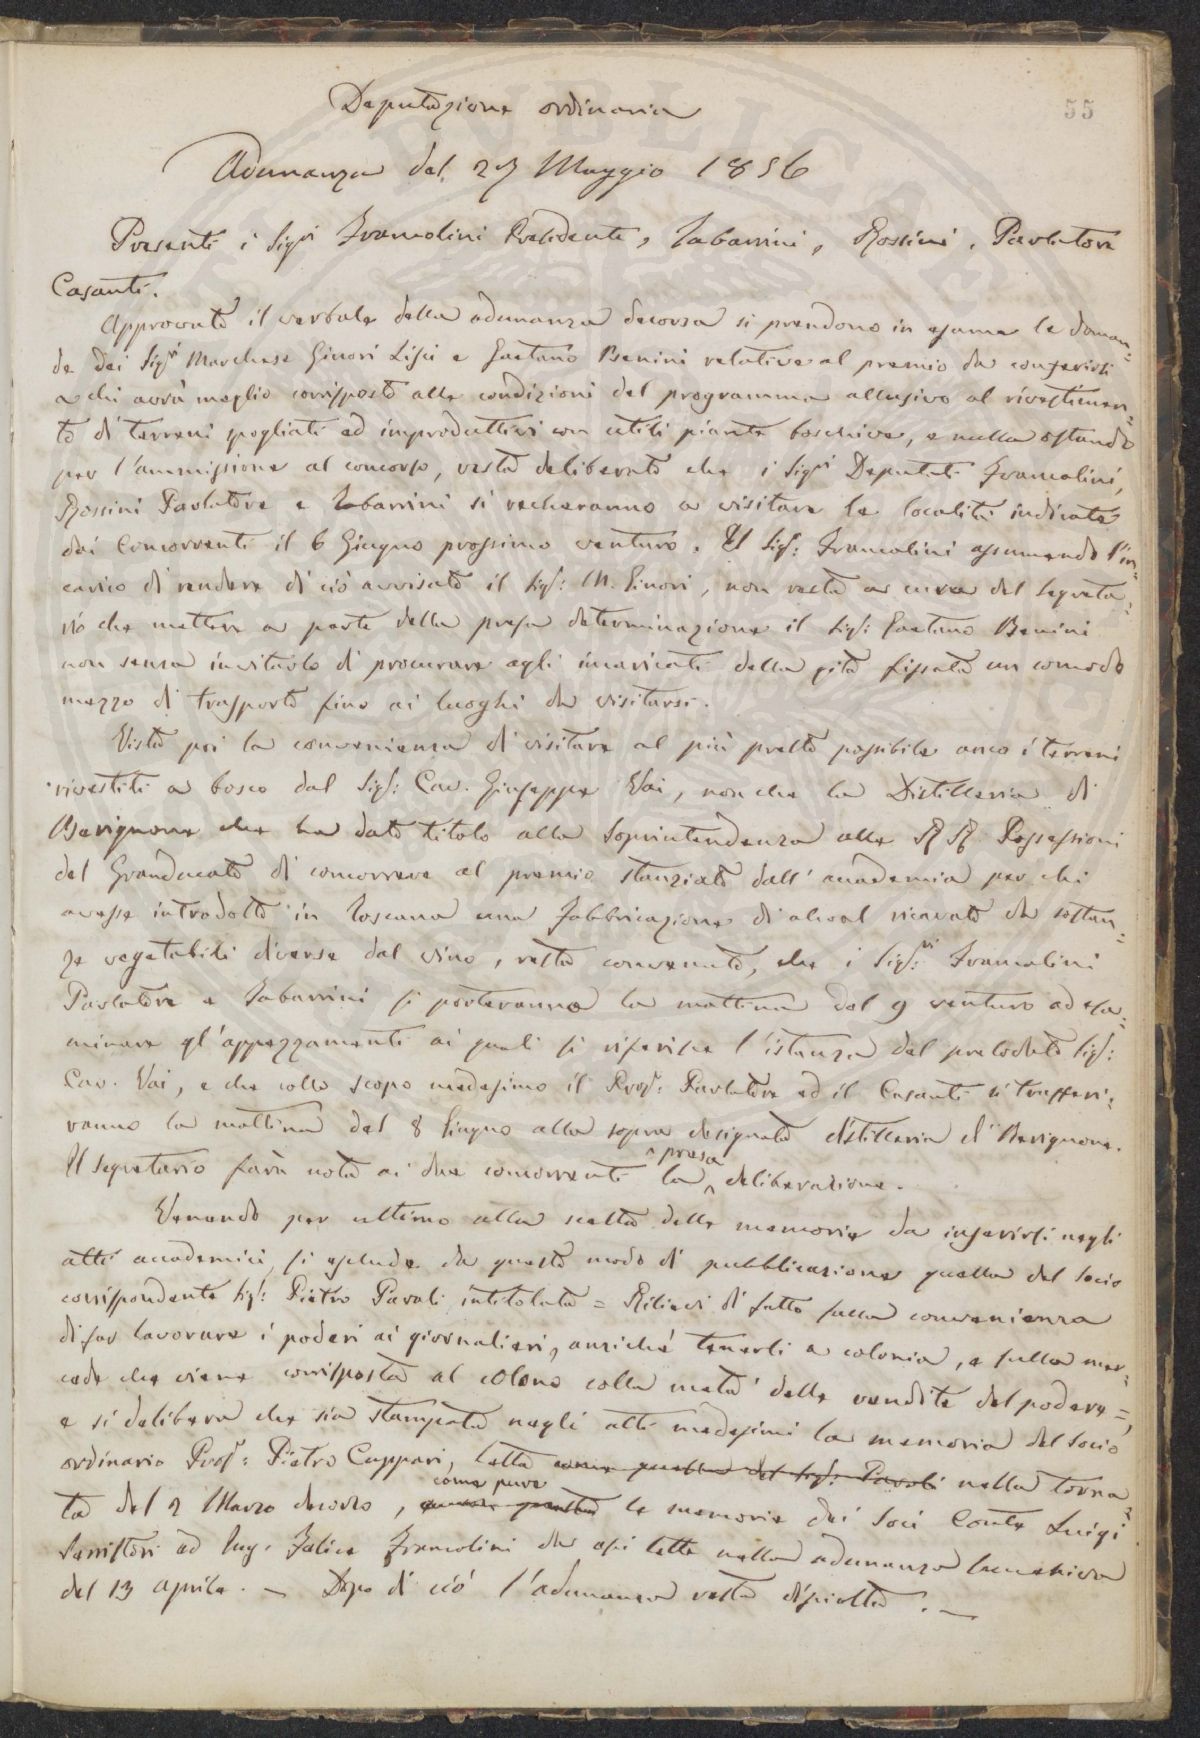 55
Deputazione ordinaria
Adunanza del 27 Maggio 1856
Presenti i Sigri Francolini Presidente, Tabarrini, Rossini, Parlatore
Casanti.
Approvato il verbale della adunanza decorsa si prendono in esame le doman=
de dei Sigri Marchese Ginori Lisci e Gaetano Benini relative al premio da conferirsi
a chi avrà meglio corrisposto alle condizioni del programma allusivo al rivestimen=
to di terreni spogliati ed improduttivi con utili piante boschive, e nulla ostando
per l'ammissione al concorso, resta deliberato che i Sigri Deputati Francolini,
Rossini Parlatore e Tabarrini si recheranno a visitare le località indicate
dai Concorrenti il 6 Giugno prossimo venturo. Il Sig: Francolini assumendo l'in=
carico di rendere di ciò avvisato il Sig: M. Ginori, non resta a cura del Segreta=
rio che mettere a parte della presa determinazione il Sig: Gaetano Benini
non senza invitarlo di procurare agli incaricati della gita fissata un comodo
mezzo di trasporto fino ai luoghi da visitarsi.
Vista poi la convenienza di visitare al più presto possibile anco i terreni
rivestiti a bosco dal Sig: Cav. Giuseppe Vai, non che la Distilleria di
Berignone che ha dato titolo alla Soprintendenza alle RR. Possessioni
del Granducato di concorrere al premio stanziato dall'accademia per chi
avesse introdotto in Toscana una fabbricazione di alcool ricavato da sostan=
ze vegetabili diverse dal vino, resta convenuto, che i Sigri Francolini
Parlatore e Tabarrini si porteranno la mattina del 9 venturo ad esa=
minare gl'appezzamenti ai quali si riferisce l'istanza del prelodato Sig:
Cav. Vai, e che collo scopo medesimo il Prof: Parlatore ed il Casanti si trasferi=
ranno la mattina del 8 Giugno alla sopra designata distilleria di Berignone.
Il Segretario farà nota ai due concorrenti la presa deliberazione.
Venendo per ultimo alla scelta delle memorie da inserirsi negli
atti accademici, si esclude da questo modo di pubblicazione quella del Socio
corrispondente Sig: Pietro Pavoli intitolata = Rilievi di fatto sulla convenienza
di far lavorare i poderi ai giornalieri, anziché tenerli a colonia, e sulla mer=
cede che viene corrisposta al colono colla metà delle rendite del podere =,
e si delibera che sia stampata negli atti medesimi la memoria del Socio
ordinario Prof: Pietro Cuppari, letta come quella del Sig: Pavoli nella torna=
ta del 2 Marzo decorso, come pure le memorie dei Soci Conte Luigi
Serristori ed Ing. Felice Francolini da essi lette nella adunanza
del 13 aprile. — Dopo di ciò l'adunanza resta disciolta. —